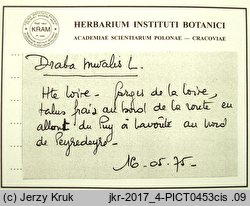 HERBARIUM INSTITUTI BOTANICI
ACADEMIAE SCIENTIARUM POLONAE — CRACOVIAE
KRAM
Draba muralis L.
Hte Loire - Gorges de la Loire,
talus frais au bord de la route en
allant du Puy à Lavoûte au bord
de Peyredeyre.
16-05-75-
(c) Jerzy Kruk jkr-2017_4-PICT0453cis_06